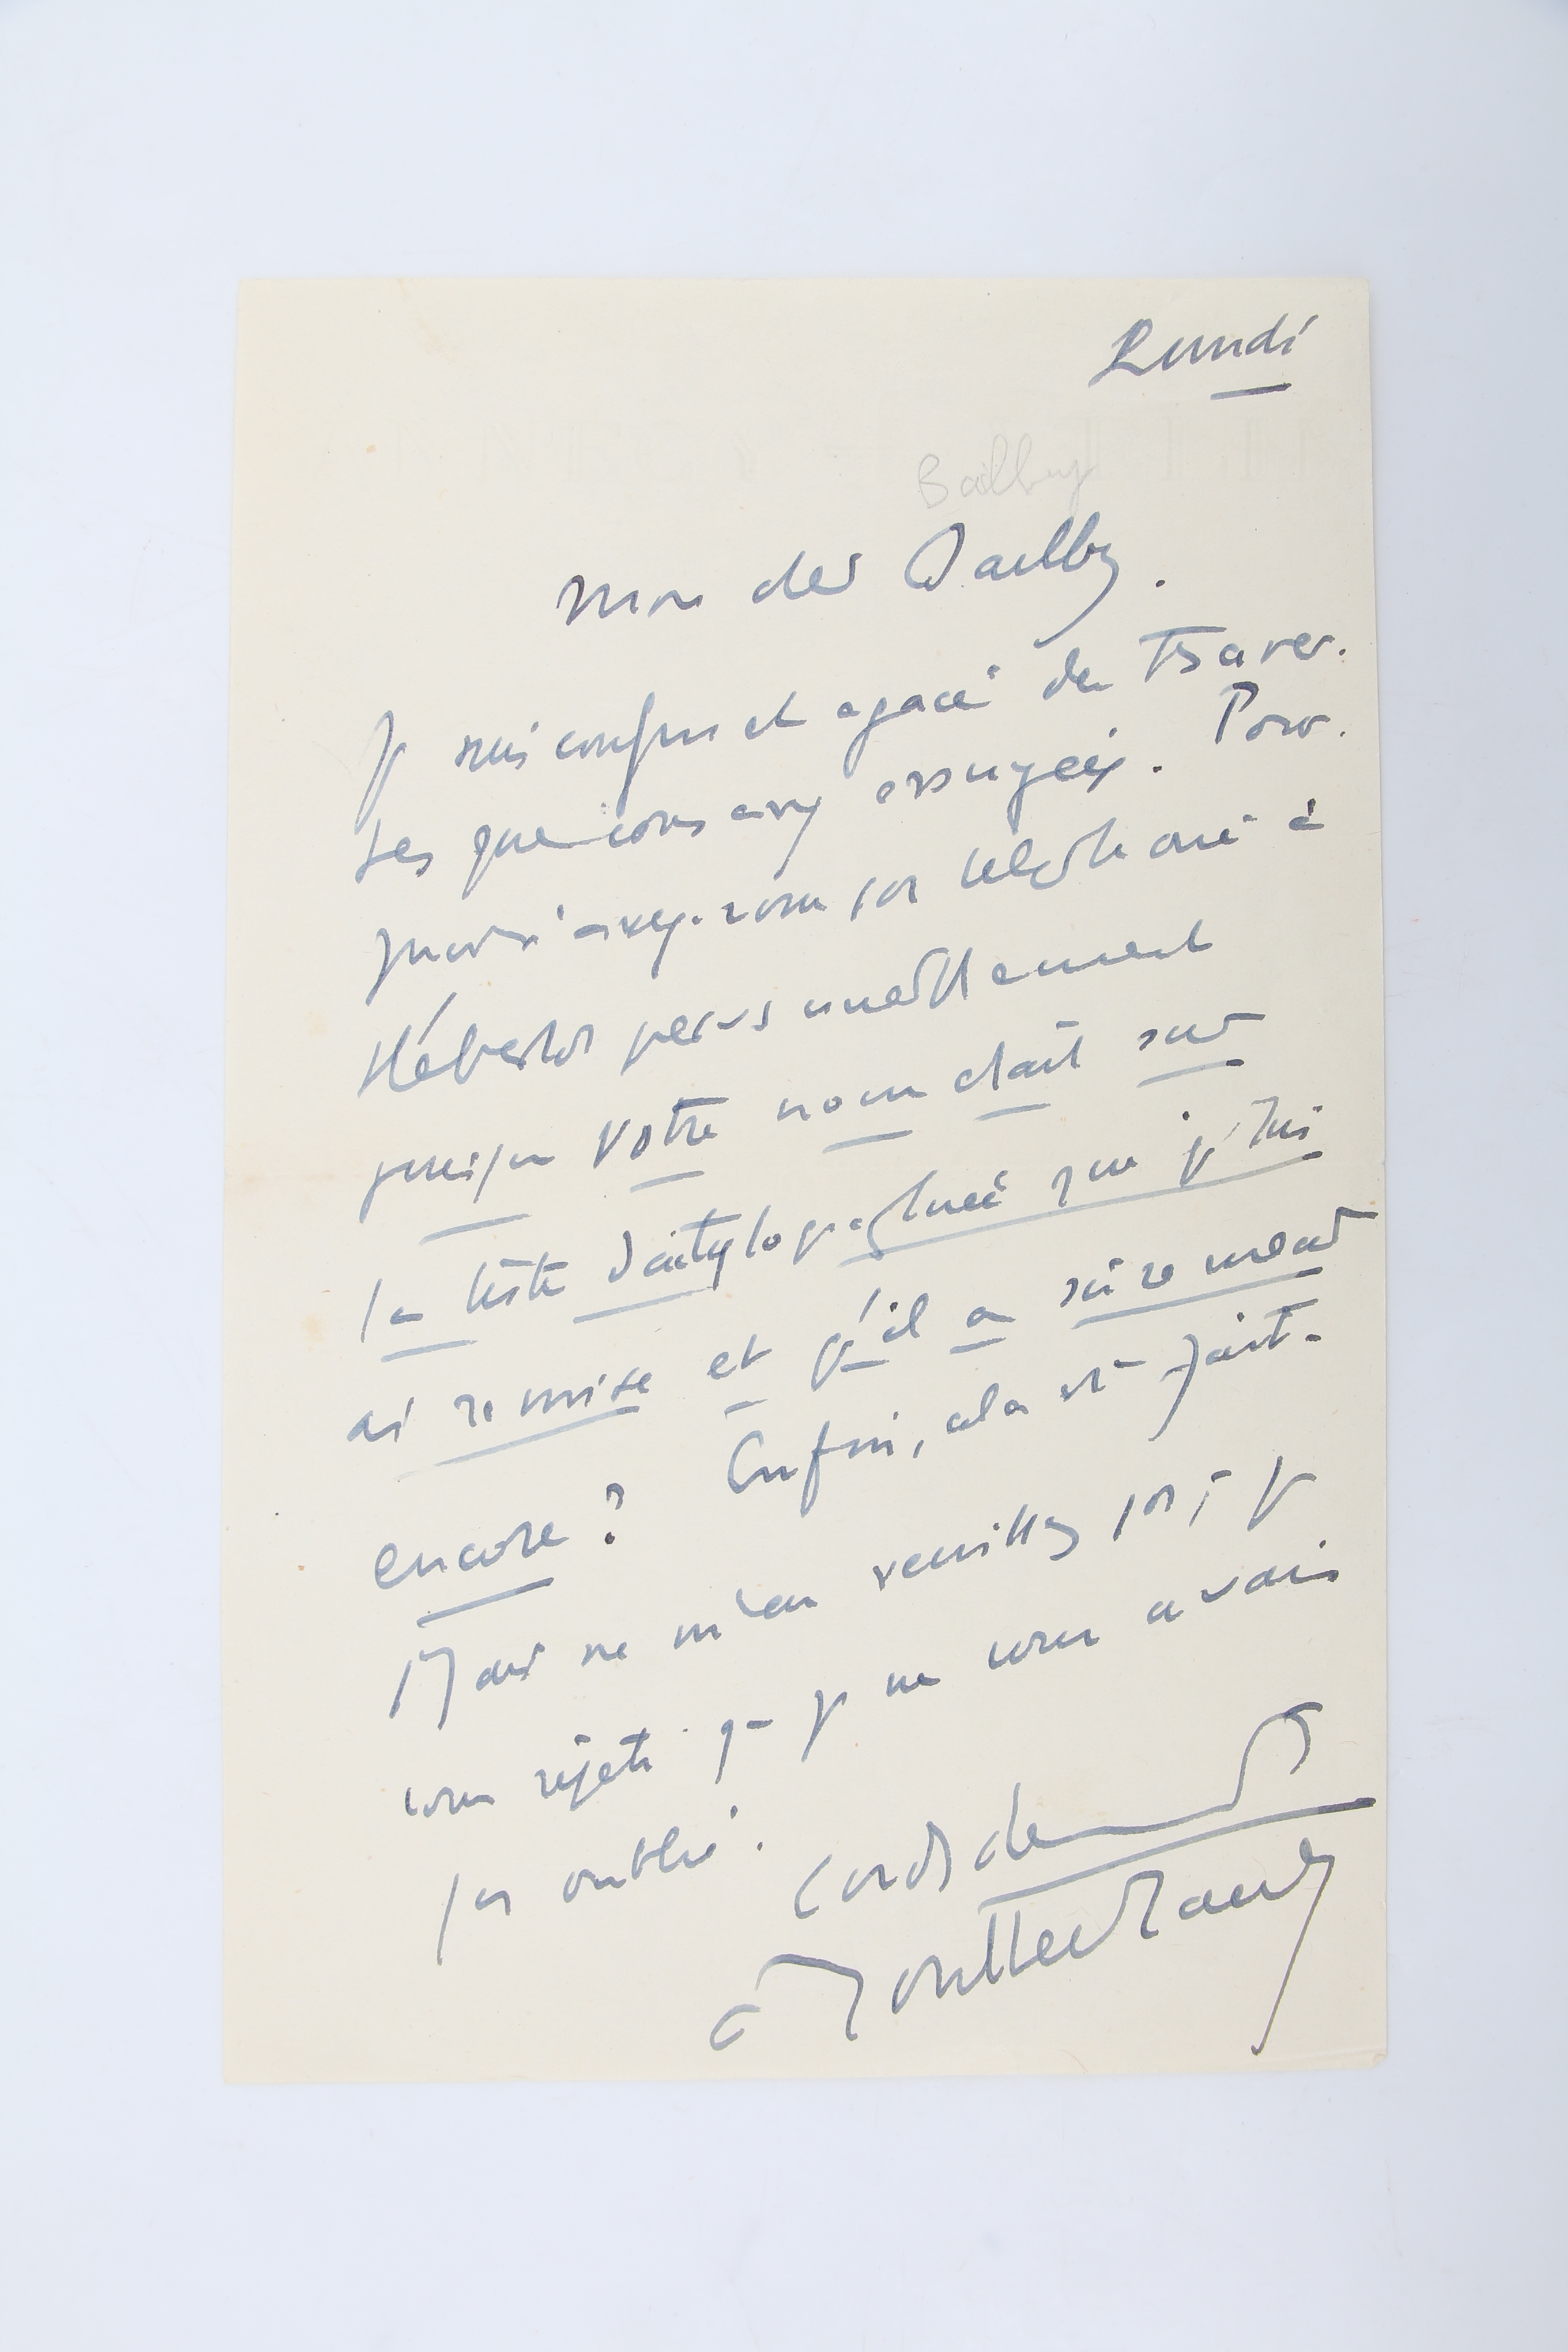 Lundi
Bailby
Mon cher Bailby.
Je suis confus et agacé des traver-
ses que vous avez essuyées. Pour-
quoi n'avez-vous pas téléphoné à
Hébertot personnellement
puisque votre nom était sur
la liste dactylographiée que je lui
ai remise et qu'il a sûrement
encore ? Enfin, cela est fait.
Mais ne m'en veuillez pas, je
vous répète que je ne vous avais
pas oublié. Cordialement
Montherlant